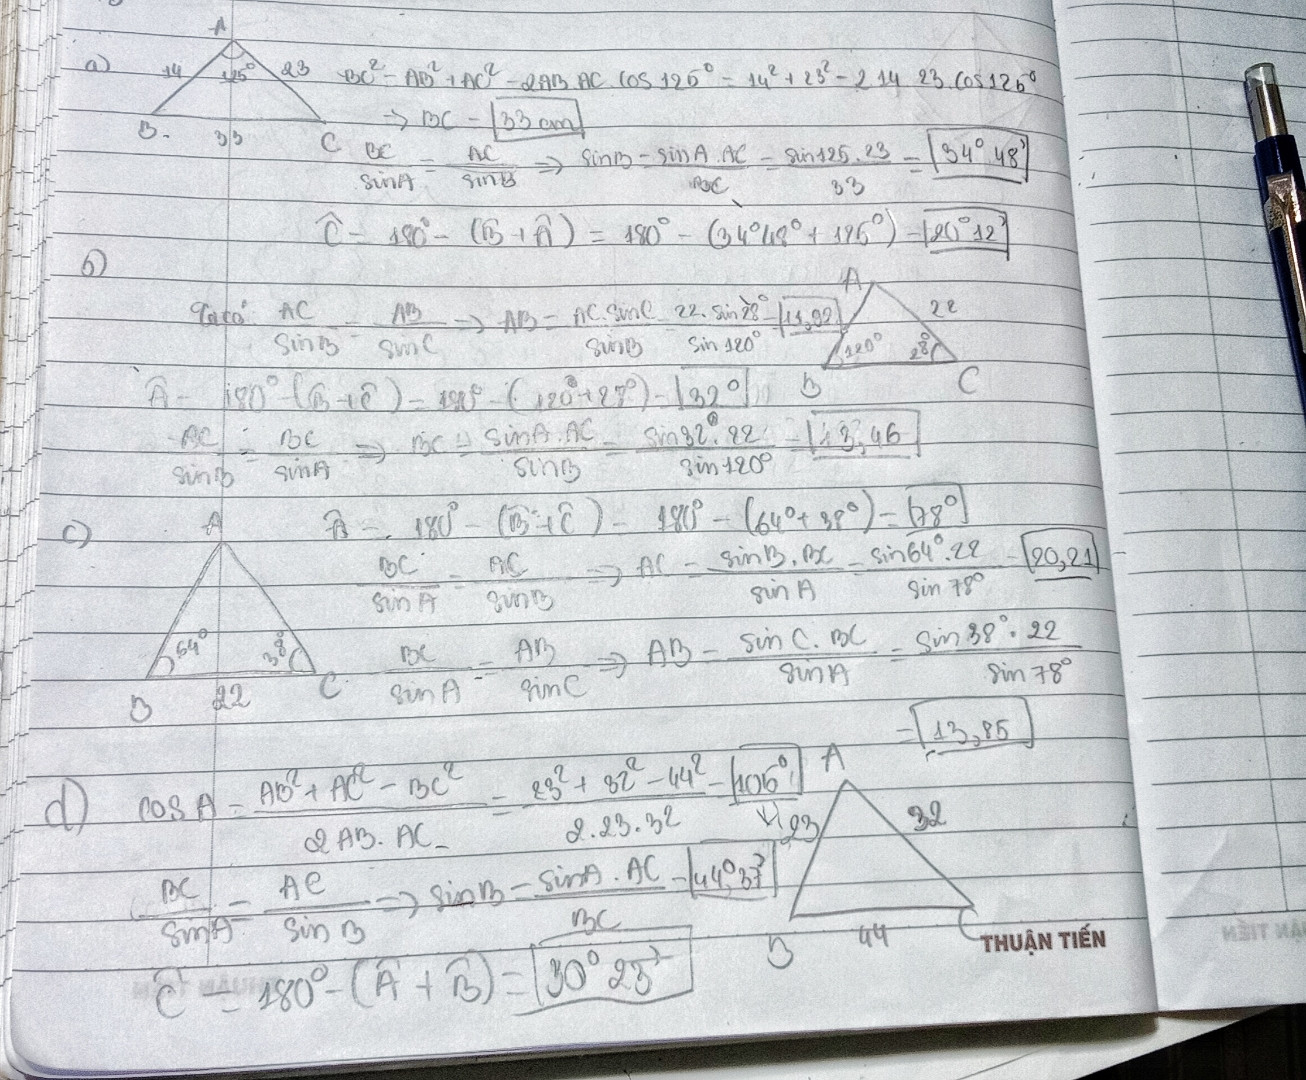 a) A 14 125° 23 BC² = AB² + AC² - 2AB.AC.cos125° = 14² + 23² - 2.14.23.cos125°
B 33 C → BC = 33 cm
BC/sinA = AC/sinB => sinB = sinA.AC/BC = sin125.23/33 = 34°48'
Ĉ = 180° - (B̂ + Â) = 180° - (34°48° + 125°) = 20°12'
b)
Ta có: AC/sinB = AB/sinC => AB = AC.sinC/sinB = 22.sin28°/sin120° = 11,92 A 22 120° 28° B C
Â = 180° - (B̂ + Ĉ) = 180° - (120° + 28°) = 32°
AC/sinB = BC/sinA => BC = sinA.AC/sinB = sin32°.22/sin120° = 13,46
c) A Â = 180° - (B̂ + Ĉ) = 180° - (64° + 38°) = 78°
BC/sinA = AC/sinB => AC = sinB.BC/sinA = sin64°.22/sin78° = 20,21
64° 38° B 22 C BC/sinA = AB/sinC => AB = sinC.BC/sinA = sin38°.22/sin78°
= 13,85
d) cosA = AB² + AC² - BC²/2AB.AC = 23² + 32² - 44²/2.23.32 = 106° A 23 32
BC/sinA = AC/sinB => sinB = sinA.AC/BC = 44°37'
B 44 C
THUẬN TIẾN
Ĉ = 180° - (Â + B̂) = 30°23'